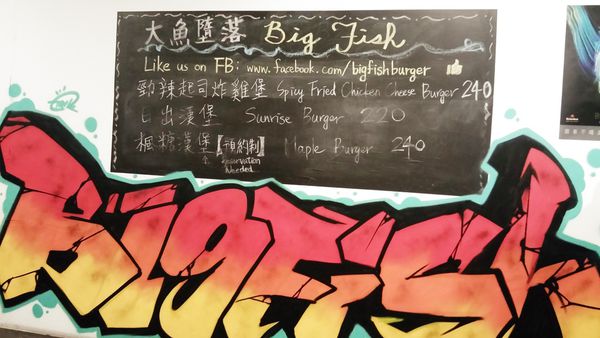 大魚墮落 Big Fish
Like us on FB: www.facebook.com/bigfishburger
勁辣起司炸雞堡 Spicy Fried Chicken Cheese Burger 240
日出漢堡 Sunrise Burger 220
楓糖漢堡【預約制】 Maple Burger 240
Reservation
needed
BigFish